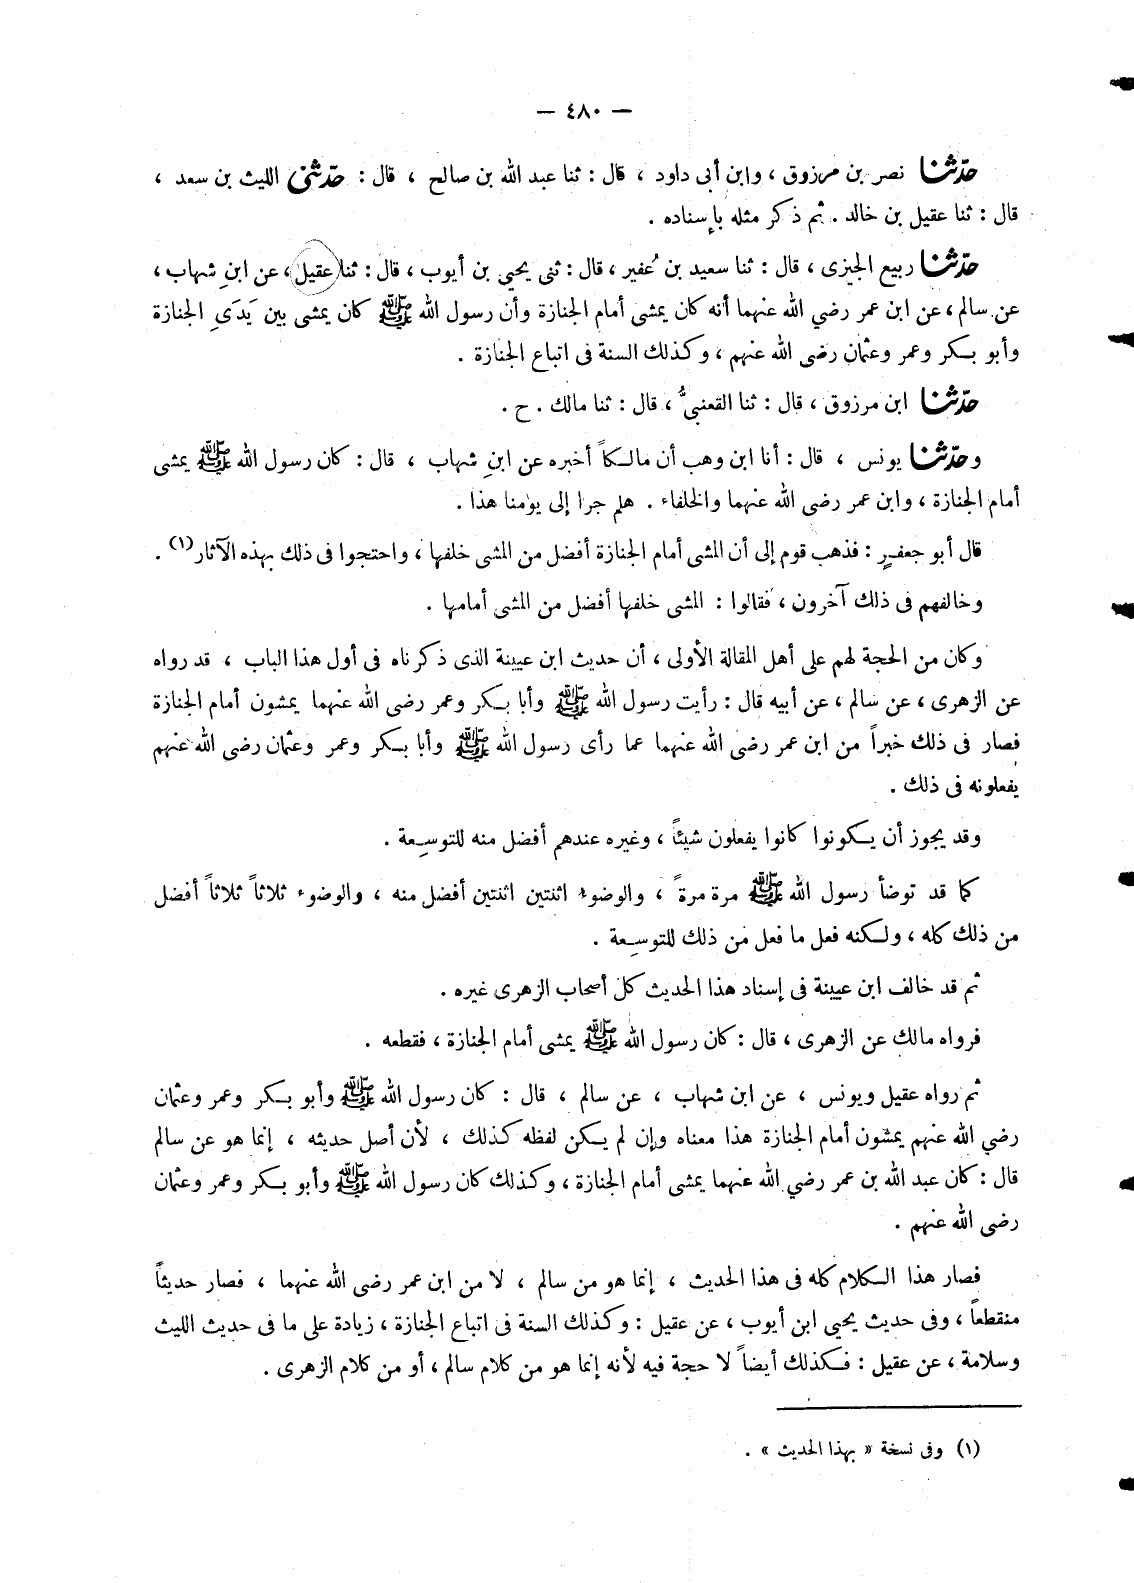 — ٤٨٠ —
حدّثنا نصر بن مرزوق ، وابن أبى داود ، قال : ثنا عبد الله بن صالح ، قال : حدّثنى الليث بن سعد ،
قال : ثنا عقيل بن خالد . ثم ذكر مثله بإسناده .
حدّثنا ربيع الجيزى ، قال : ثنا سعيد بن عُفير ، قال : ثنى يحيي بن أيوب ، قال : ثنا عقيل ، عن ابنِ شهاب ،
عن سالم ، عن ابن عمر رضي الله عنهما أنه كان يمشى أمام الجنازة وأن رسول الله ﷺ كان يمشى بين يَدَىِ الجنازة
وأبو بكر وعمر وعثمان رضى الله عنهم ، وكذلك السنة فى اتباع الجنازة .
حدّثنا ابن مرزوق ، قال : ثنا القعنبىُّ ، قال : ثنا مالك . ح .
وحدّثنا يونس ، قال : أنا ابن وهب أن مالكاً أخبره عن ابنِ شهاب ، قال : كان رسول الله ﷺ يمشى
أمام الجنازة ، وابن عمر رضى الله عنهما والخلفاء . هلم جرا إلى يومنا هذا .
قال أبو جعفرٍ : فذهب قوم إلى أن المشى أمام الجنازة أفضل من المشى خلفها ، واحتجوا فى ذلك بهذه الآثار(١) .
وخالفهم فى ذلك آخرون ، فقالوا : المشى خلفها أفضل من المشى أمامها .
وكان من الحجة لهم على أهل المقالة الأولى ، أن حديث ابن عيينة الذى ذكرناه فى أول هذا الباب ، قد رواه
عن الزهرى ، عن سالم ، عن أبيه قال : رأيت رسول الله ﷺ وأبا بكر وعمر رضى الله عنهما يمشون أمام الجنازة
فصار فى ذلك خبراً من ابن عمر رضى الله عنهما عما رأى رسول الله ﷺ وأبا بكر وعمر وعثمان رضى الله عنهم
يفعلونه فى ذلك .
وقد يجوز أن يكونوا كانوا يفعلون شيئاً ، وغيره عندهم أفضل منه للتوسِعة .
كما قد توضأ رسول الله ﷺ مرة مرةً ، والوضوء اثنتين اثنتين أفضل منه ، والوضوء ثلاثاً ثلاثاً أفضل
من ذلك كله ، ولكنه فعل ما فعل من ذلك للتوسِعة .
ثم قد خالف ابن عيينة فى إسناد هذا الحديث كل أصحاب الزهرى غيره .
فرواه مالك عن الزهرى ، قال : كان رسول الله ﷺ يمشى أمام الجنازة ، فقطعه .
ثم رواه عقيل ويونس ، عن ابن شهاب ، عن سالم ، قال : كان رسول الله ﷺ وأبو بكر وعمر وعثمان
رضي الله عنهم يمشون أمام الجنازة هذا معناه وإن لم يكن لفظه كذلك ، لأن أصل حديثه ، إنما هو عن سالم
قال : كان عبد الله بن عمر رضي الله عنهما يمشى أمام الجنازة ، وكذلك كان رسول الله ﷺ وأبو بكر وعمر وعثمان
رضى الله عنهم .
فصار هذا الكلام كله فى هذا الحديث ، إنما هو من سالم ، لا من ابن عمر رضى الله عنهما ، فصار حديثاً
منقطعاً ، وفى حديث يحيي ابن أيوب ، عن عقيل : وكذلك السنة فى اتباع الجنازة ، زيادة على ما فى حديث الليث
وسلامة ، عن عقيل : فكذلك أيضاً لا حجة فيه لأنه إنما هو من كلام سالم ، أو من كلام الزهرى .
(١) وفى نسخة « بهذا الحديث » .